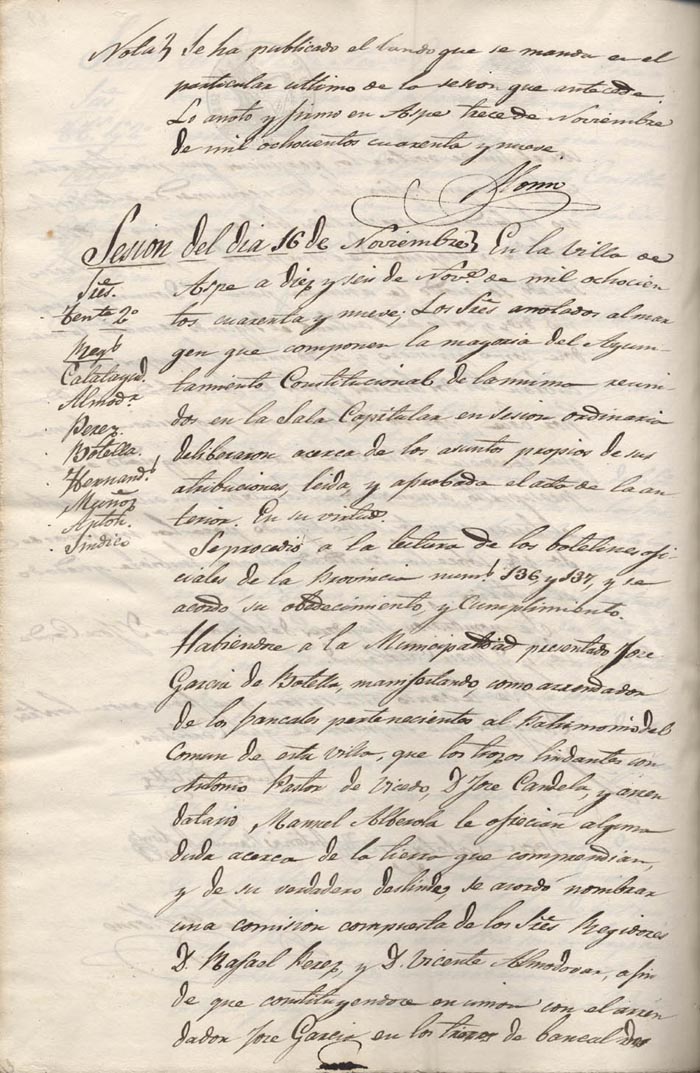 Nota} Se ha publicado el bando que se manda en el
particular ultimo de la sesion que antecede.
Lo anoto y firmo en Aspe trece de Noviembre
de mil ochocientos cuarenta y nueve
Sesion del dia 16 de Noviembre} En la villa de
Aspe a diez y seis de Nove. de mil ochocien
tos cuarenta y nueve; Los Sres. anotados al mar
gen que componen la mayoria del Ayun-
tamiento Constitucional de la misma reuni-
dos en la Sala Capitular en sesion ordinaria
deliberaron acerca de los asuntos propios de sus
atribuciones, leida, y aprobada el acta de la an-
terior. En su virtud.
Sres.
Tente. 2º
Regs.
Calatayud.
Almodr.
Perez.
Botella.
Hernandz.
Muñoz
Sindico
Se procedió a la lectura de los boletines ofi-
ciales de la Provincia nums. 136 y 137, y se
acordo su obedecimiento, y cumplimiento.
Habiendose a la Municipalidad presentado Jose
Garcia de Botella, manifestando como arrendador
de los bancales pertenecientes al Patrimonio del
Comun de esta villa, que los trozos lindantes con
Antonio Pastor de Vicedo, D. Jose Candela, y arren
datario, Manuel Alberola le ofrecian alguna
duda acerca de la tierra que comprendian,
y de su verdadero deslinde, se acordó nombrar
una comision compuesta de los Sres. Regidores
D. Rafael Perez, y D. Vicente Almodovar, a fin
de que constituyendose en union con el arren
dador Jose Garcia en los trozos de bancal des